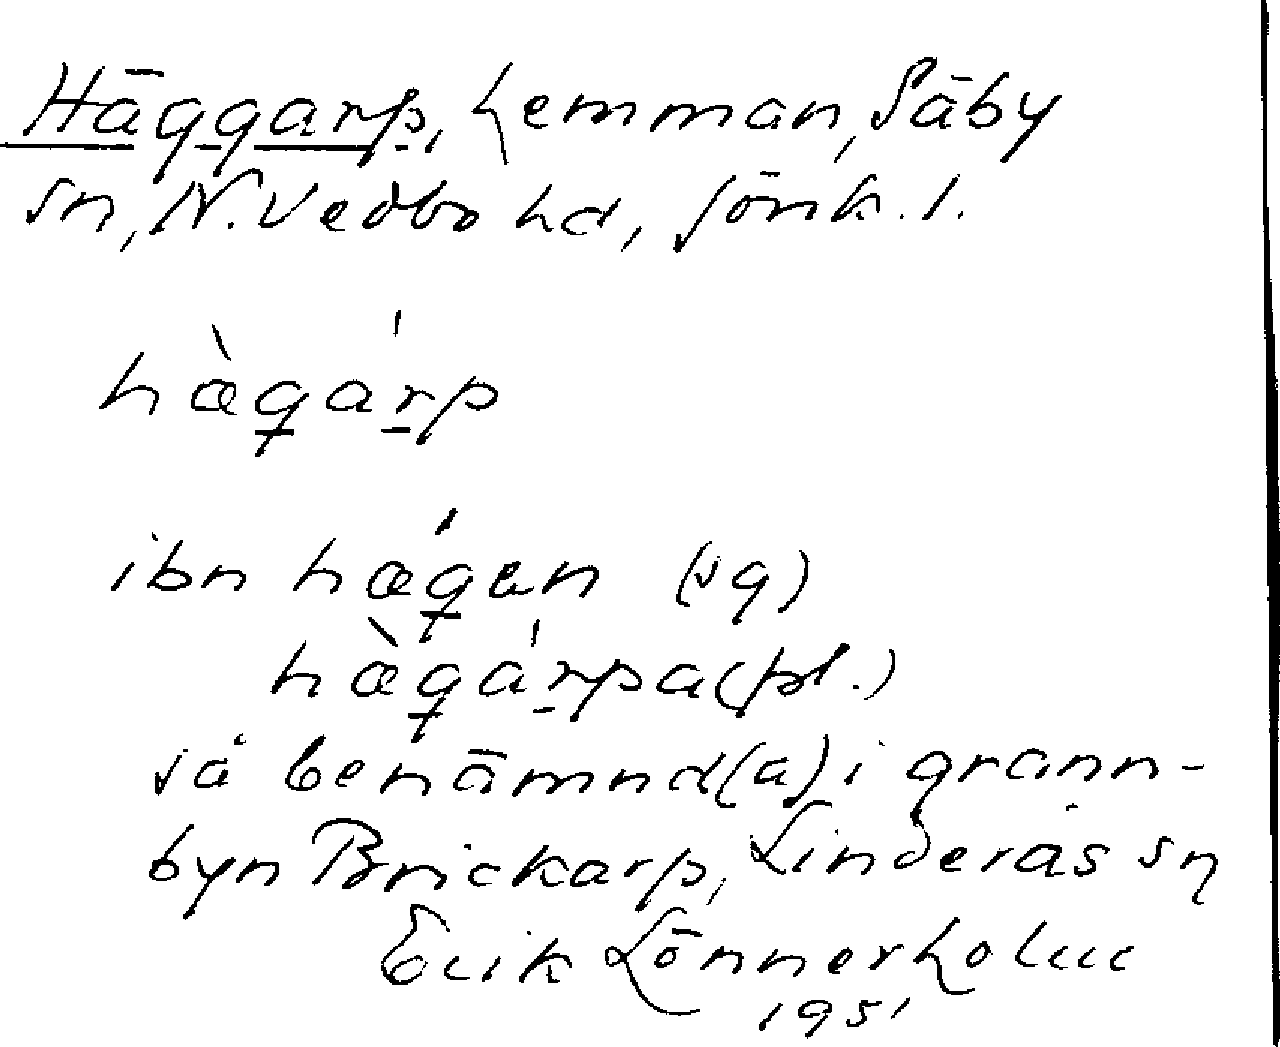 Häggarp, hemman, Säby
sn, N. Vedbo hd, Jönk. l.
hæ̀gárp
ibn hǽgen (sg)
hæ̀gárpa (pl.)
så benämnd(a) i grann-
byn Brickarp, Linderås sn
Erik Lönnerholm
1951